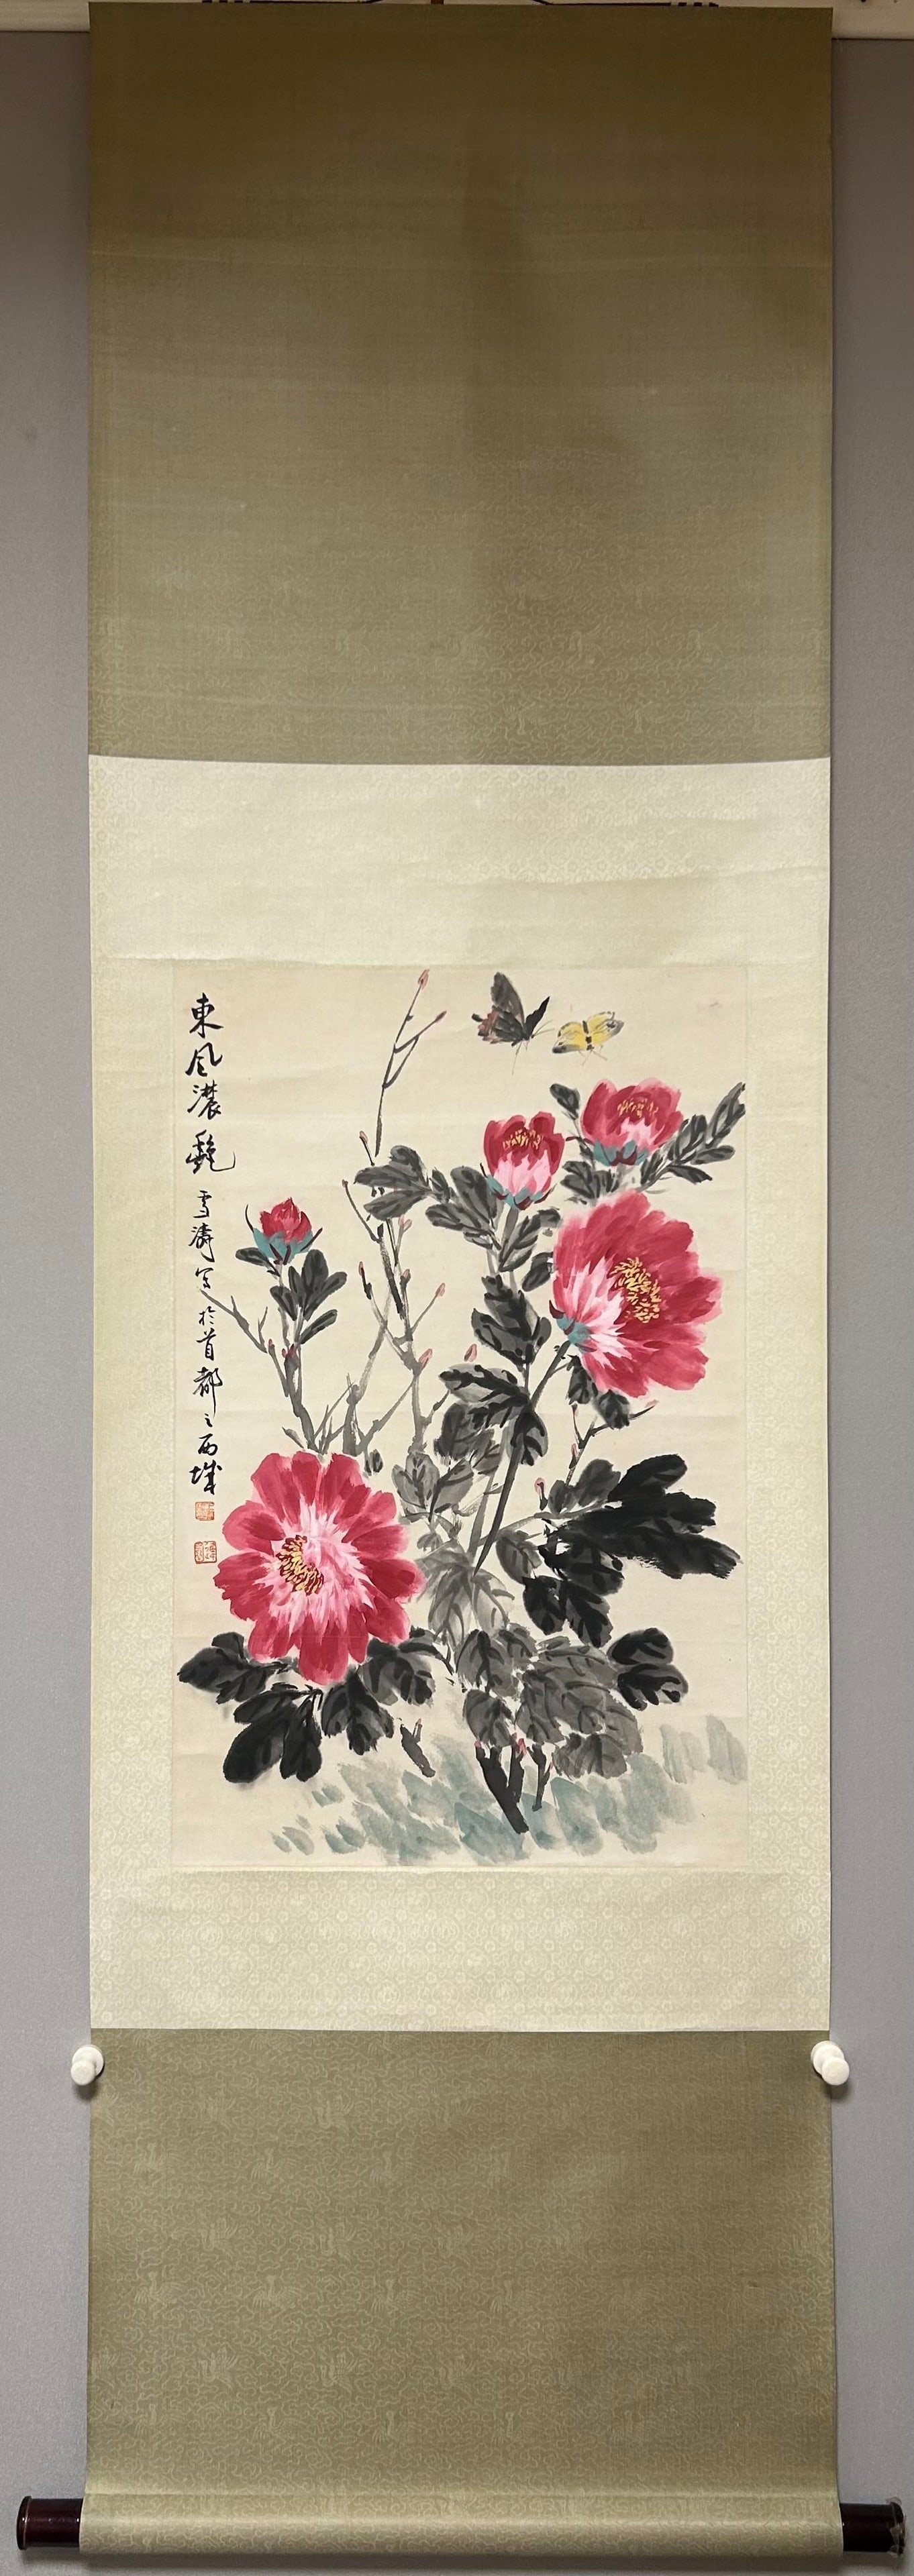 東風濃艷 雪濤写於首都之西城